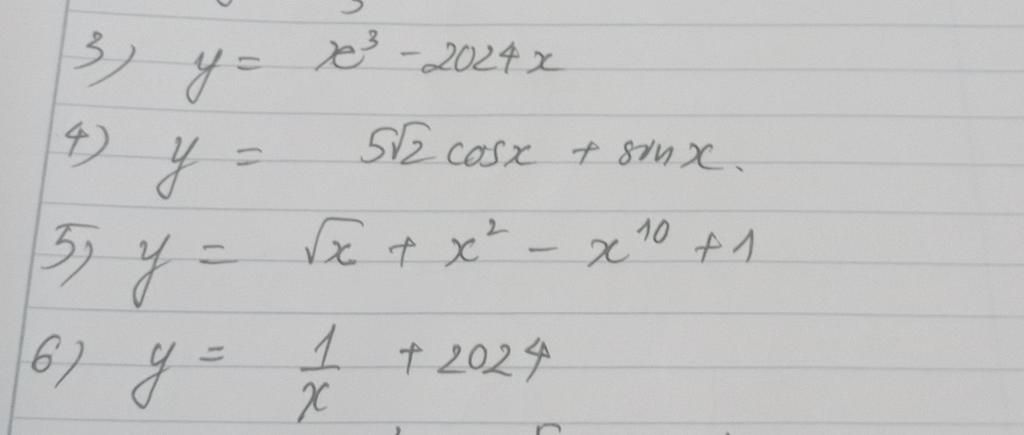 3) y = x³ - 2024x
4) y = 5√2 cosx + sinx.
5) y = √x + x² - x¹⁰ + 1
6) y = 1/x + 2024